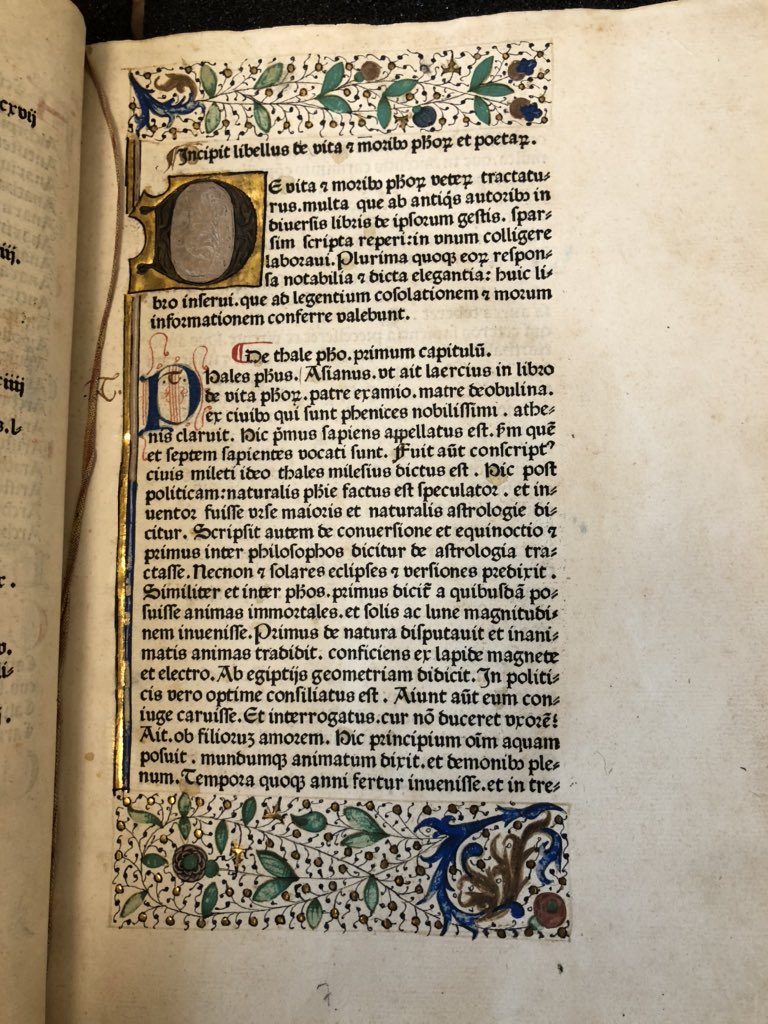 cxvij
iij.
iiij
s.l⸗
Incipit libellus de vita ⁊ moribꝰ ph̄oꝝ et poetaꝝ.
DE vita ⁊ moribꝰ ph̄oꝝ veteꝝ tractatu⸗
rus.multa que ab antiq̇s autoribꝰ in
diuersis libris de ipsorum gestis. spar⸗
sim scripta reperi:in vnum colligere
laboraui.Plurima quoqꝫ eoꝝ respon⸗
sa notabilia ⁊ dicta elegantia: huic li⸗
bro inserui.que ad legentium cōsolationem ⁊ morum
informationem conferre valebunt.
De thale ph̄o.primum capitulū.
T.
Thales ph̄us. Asianus.vt ait laercius in libro
de vita ph̄oꝝ.patre examio.matre deobulina.
ex ciuibꝰ qui sunt phenices nobilissimi . athe⸗
nis claruit. Hic pͥmus sapiens appellatus est.ẜm quē
et septem sapientes vocati sunt. Fuit aūt conscriptꝰ
ciuis mileti ideo thales milesius dictus est . Hic post
politicam:naturalis ph̄ie factus est speculator . et in⸗
uentor fuisse vrse maioris et naturalis astrologie di⸗
citur. Scripsit autem de conuersione et equinoctio ⁊
primus inter philosophos dicitur de astrologia tra⸗
ctasse.Necnon ⁊ solares eclipses ⁊ versiones predixit .
Similiter et inter ph̄os.primus dicit̄ a quibusdā po⸗
suisse animas immortales.et solis ac lune magnitudi⸗
nem inuenisse.Primus de natura disputauit et inani⸗
matis animas tradidit. conficiens ex lapide magnete
et electro. Ab egiptijs geometriam didicit.In politi⸗
cis vero optime consiliatus est . Aiunt aūt eum con⸗
iuge caruisse.Et interrogatus.cur nō duceret vxorē!
Ait.ob filioruꝫ amorem. Hic principium oīm aquam
posuit . mundumqꝫ animatum dixit.et demonibꝰ ple⸗
num.Tempora quoqꝫ anni fertur inuenisse.et in tre⸗
7